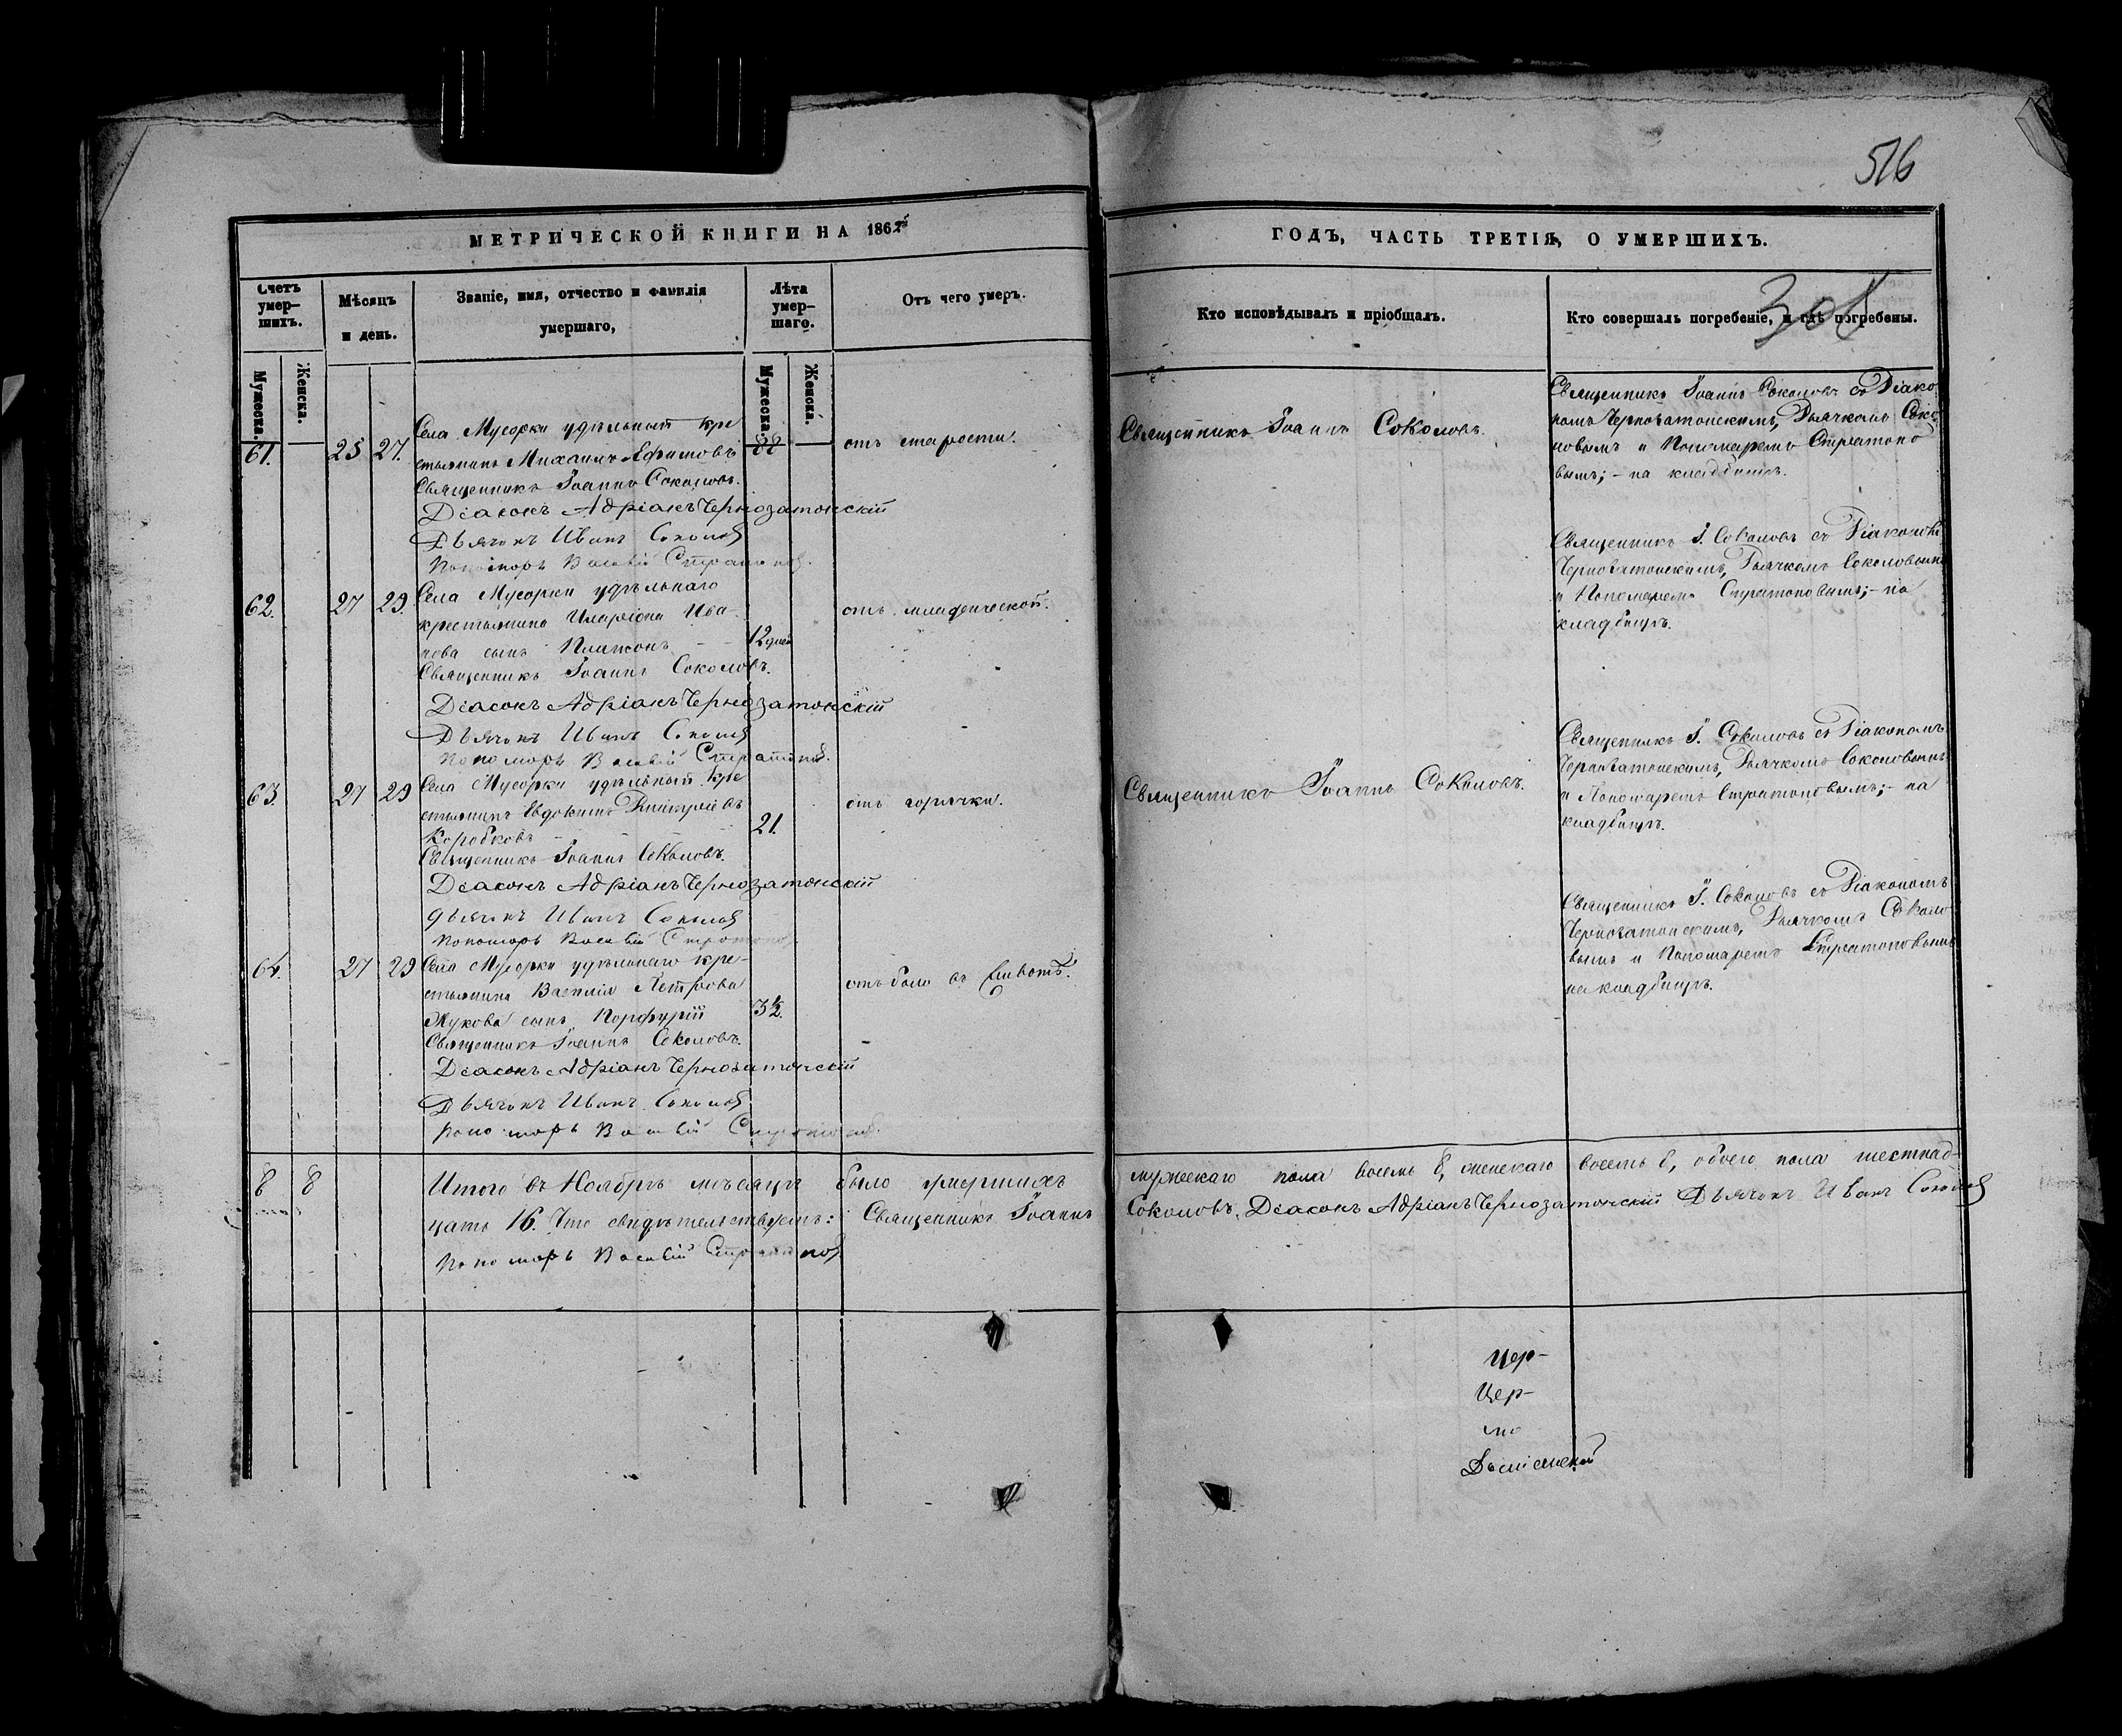 516
МЕТРИЧЕСКОЙ КНИГИ НА 186
ГОДЪ, ЧАСТЬ ТРЕТІЯ, О УМЕРШИХЪ.
Счетъ умер-
шихъ.
Мѣсяцъ
и день.
Званіе, имя, отчество и фамилія
умершаго,
Лѣта
умер-
шаго.
Отъ чего умеръ.
Кто исповѣдывалъ и пріобщалъ.
Кто совершалъ погребеніе, и гдѣ погребены.
Мужеска.
Женска.
Мужеска.
Женска.
61.
25 27.
Села Мусорки удѣльный кре
стьянинъ Михаилъ Ефимовъ
88
отъ старости.
Священникъ Іоаннъ Соколовъ.
Священникъ Іоаннъ Соколовъ съ Діако
номъ Чернозатонскимъ, Дьячкомъ Соко
ловымъ и Пономаремъ Стратоно
вымъ; - на кладбищѣ.
Священникъ Іоаннъ Соколовъ.
Діаконъ Адріанъ Чернозатонскій
Дьячокъ Иванъ Соколов
Пономарь Василій Стратонов.
62.
27 29.
Села Мусорки удѣльнаго
крестьянина Иларіона Ива-
нова сынъ Платонъ
12 дней
отъ младенческой.
Священникъ І. Соколовъ съ Діакономъ
Чернозатонскимъ, Дьячкомъ Соколовымъ
и Пономаремъ Стратоновымъ; - на
кладбищѣ.
Священникъ Іоаннъ Соколовъ.
Діаконъ Адріанъ Чернозатонскій
Дьячокъ Иванъ Соколов
Пономарь Василій Стратонов.
63.
27 29
Села Мусорки удѣльный кре
стьянинъ Евдокимъ Димитріевъ
Коробковъ
21.
отъ горячки.
Священникъ Іоаннъ Соколовъ.
Священникъ І. Соколовъ съ Діакономъ
Чернозатонскимъ, Дьячкомъ Соколовымъ
и Пономаремъ Стратоновымъ; - на
кладбищѣ.
Священникъ Іоаннъ Соколовъ.
Діаконъ Адріанъ Чернозатонскій
Дьячокъ Иванъ Соколов
Пономарь Василій Стратонов.
64.
27 29
Села Мусорки удѣльнаго кре-
стьянина Василія Петрова
Жукова сынъ Порфурій
3½.
отъ боли въ животѣ.
Священникъ І. Соколовъ съ Діакономъ
Чернозатонскимъ, Дьячкомъ Соколо
вымъ и Пономаремъ Стратоновымъ
на кладбищѣ.
Священникъ Іоаннъ Соколовъ.
Діаконъ Адріанъ Чернозатонскій
Дьячокъ Иванъ Соколов
Пономарь Василій Стратонов.
8 8
Итого въ Ноябрѣ мѣсяцѣ было умершихъ мужескаго пола восемь 8, женскаго восемь 8, обоего пола шестнад-
цать 16. Что свидѣтельствуемъ: Священникъ Іоаннъ Соколовъ. Діаконъ Адріанъ Чернозатонскій Дьячокъ Иванъ Соколов
Пономарь Василій Стратонов
Цер-
Цер-